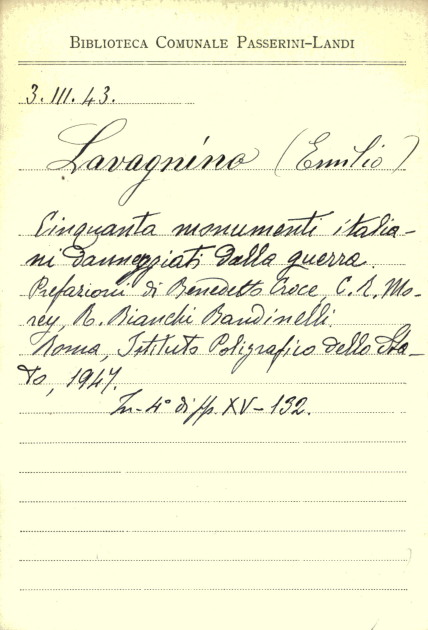 BIBLIOTECA COMUNALE PASSERINI-LANDI
3. III. 43.
Lavagnino (Emilio)
Cinquanta monumenti italia-
ni danneggiati dalla guerra.
Prefazioni di Benedetto Croce, C. R. Mo-
rey, R. Bianchi Bandinelli.
Roma, Istituto Poligrafico dello Sta-
to, 1947.
In-4° di pp. XV-132.